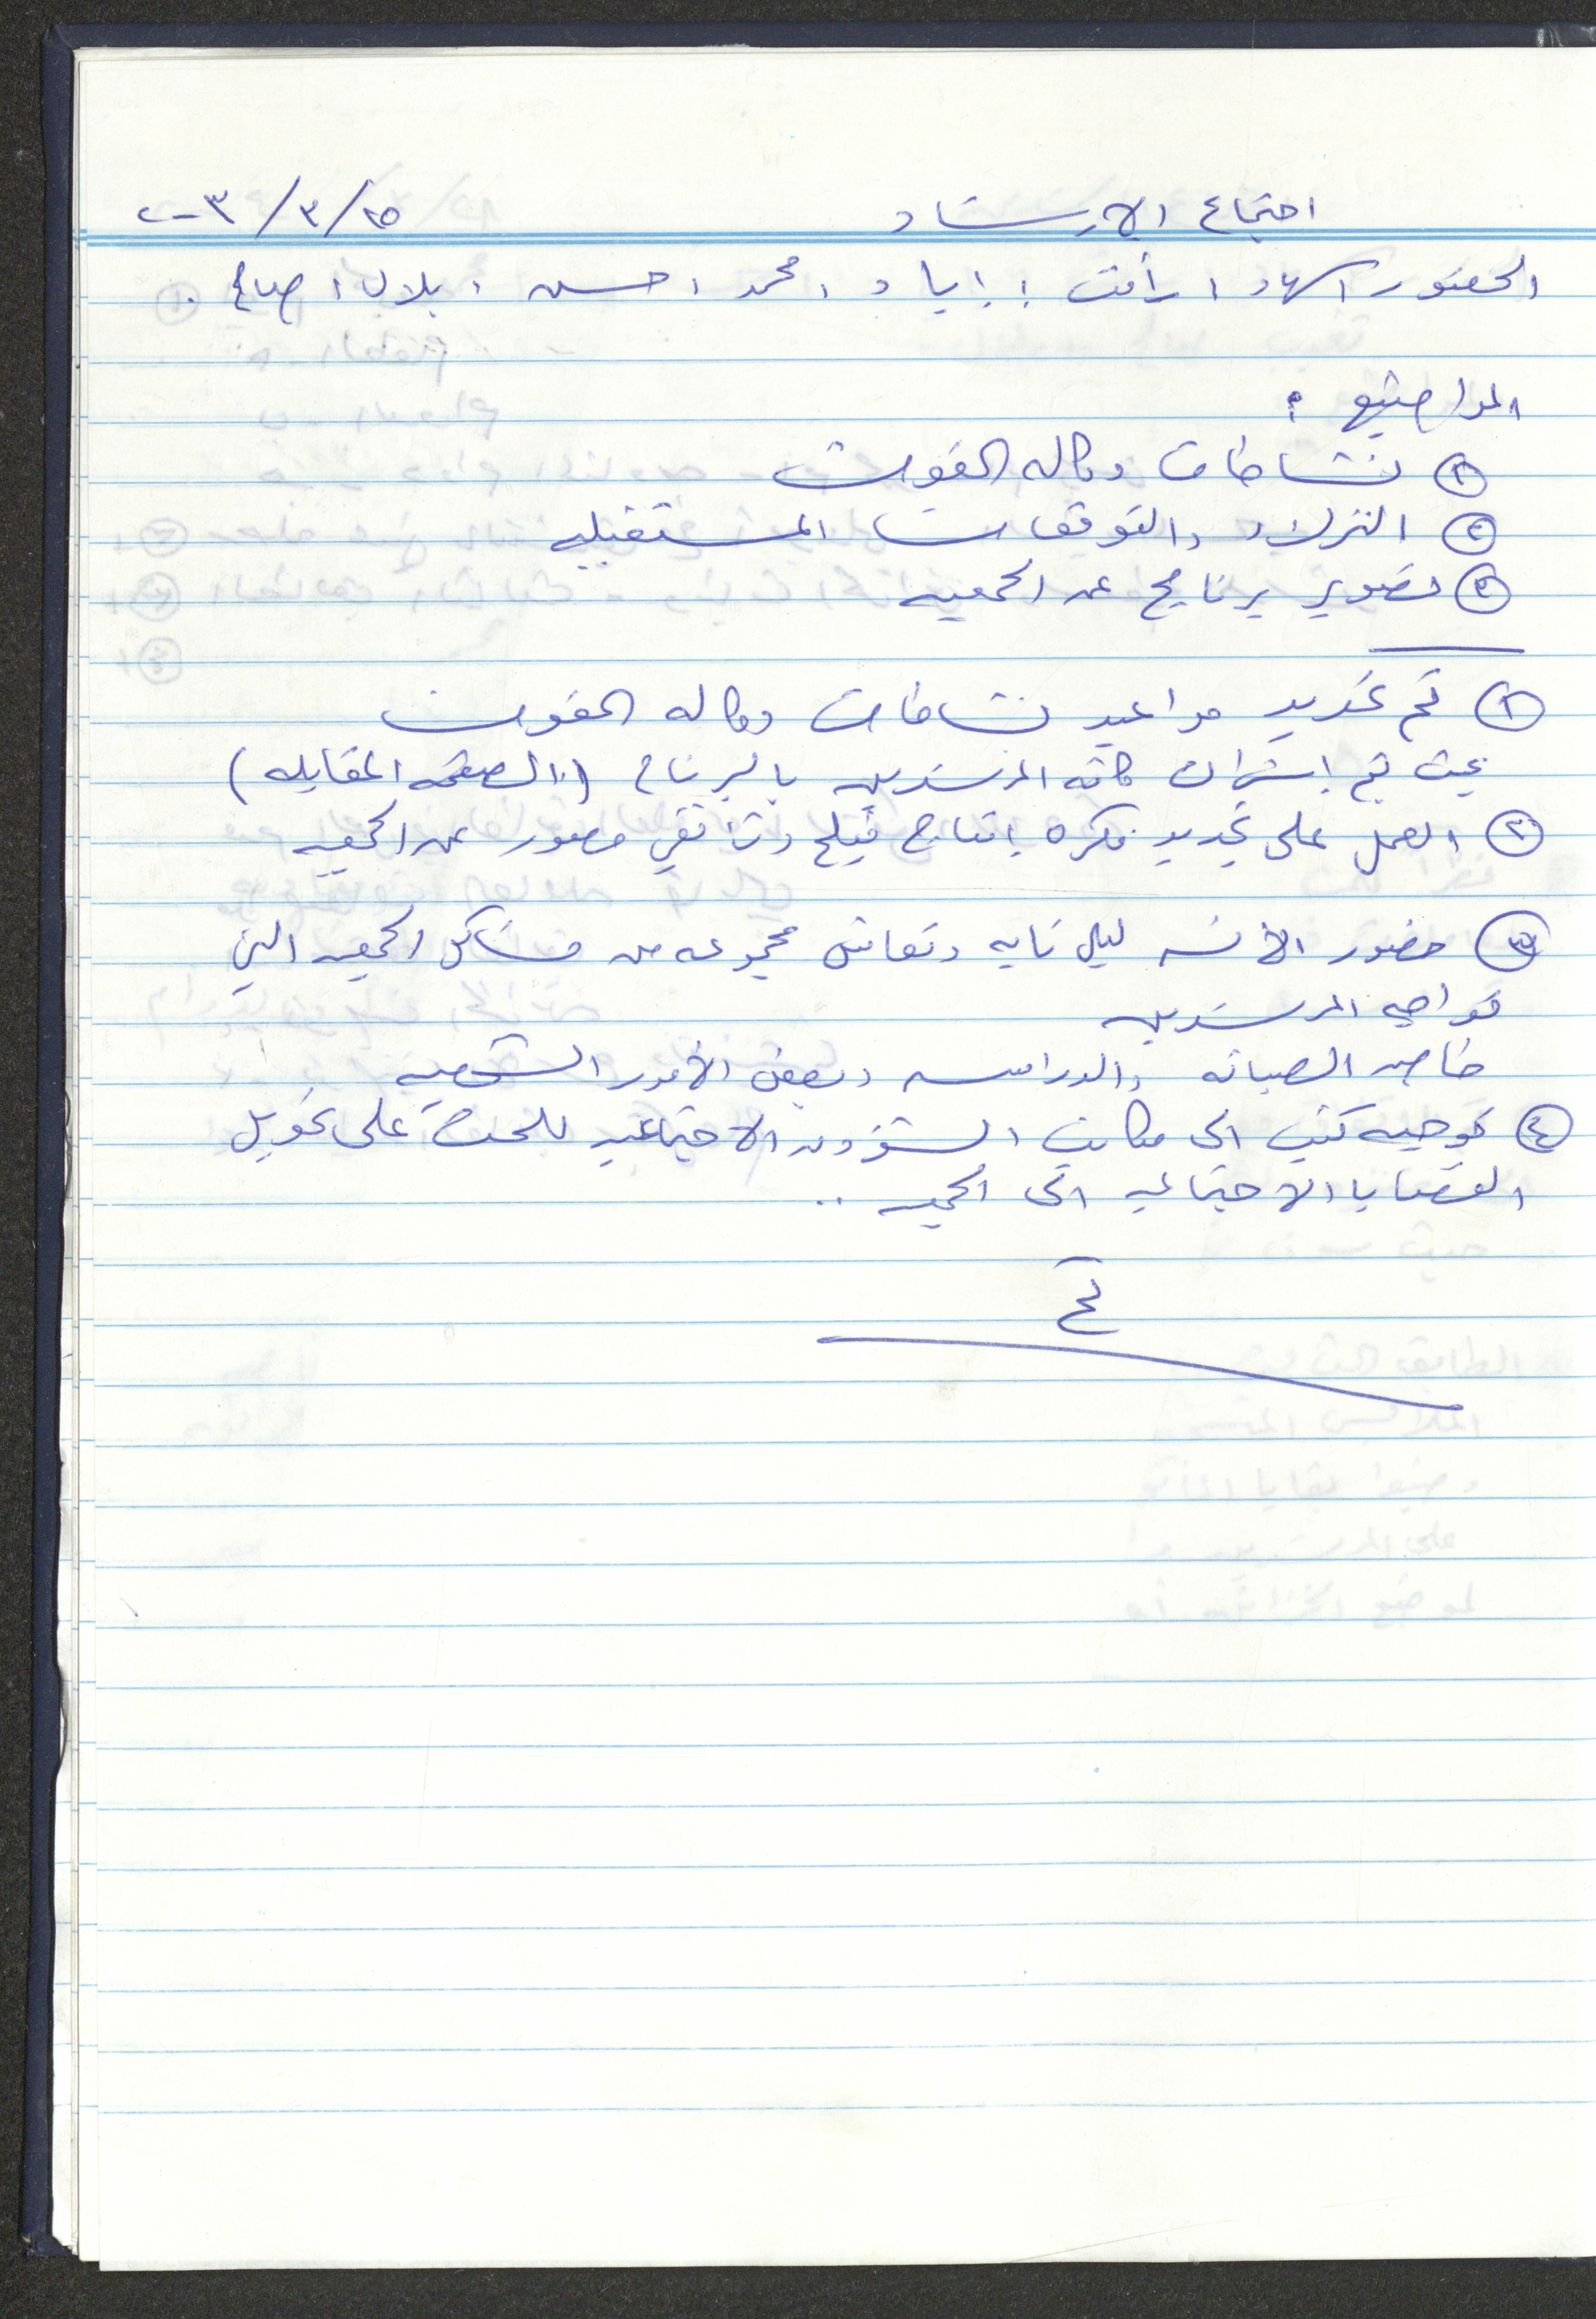 اجتماع الارشاد ٢٠٠٣/٣/١٥
الحضور : سهاد ، رأفت ، إياد ، محمد ، حسن ، بلال ، صالح .
المواضيع :
① نشاطات وكاله الغوث
② النزلاء والتوقعات المستقبليه
③ تصوير برنامج عن الجمعيه
① تم تحديد مواعيد نشاطات وكاله الغوث
بحيث تم إشراك كافه المرشدين بالبرنامج (الصفحه المقابله)
② العمل على تحديد فكره إنتاج فيلم وثائقي مصور عن الجمعيه
③ حضور الآنسه ليلى نايه ونقاش مجموعه من مشاكل الجمعيه التي
تواجه المرشدين
خاصه الصيانه والدراسه وبعض الأمور الشخصيه
④ توجيه كتب الى مكاتب الشؤون الاجتماعيه للحث على تحويل
القضايا الاجتماعيه الى الجمعيه ..
تم